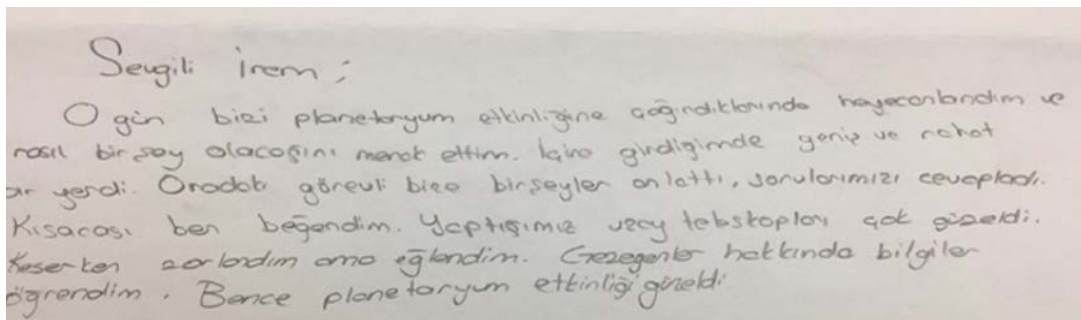 Sevgili İrem;
O gün bizi planetaryum etkinliğine çağırdıklarında heyecanlandım ve
nasıl bir şey olacağını merak ettim. İçine girdiğimde geniş ve rahat
bir yerdi. Oradaki görevli bize birşeyler anlattı, sorularımızı cevapladı.
Kısacası ben beğendim. Yaptığımız uzay teleskopları çok güzeldi.
Keserken zorlandım ama eğlendim. Gezegenler hakkında bilgiler
öğrendim. Bence planetaryum etkinliği güzeldi